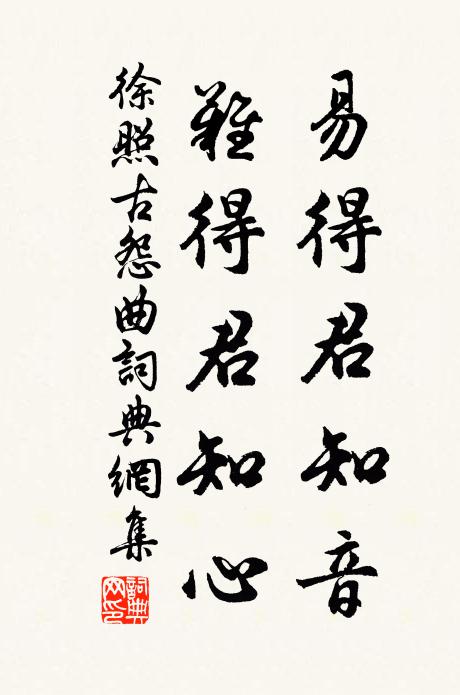 易得君知音
難得君知心
徐照古怨曲詞典網集
詞典網印